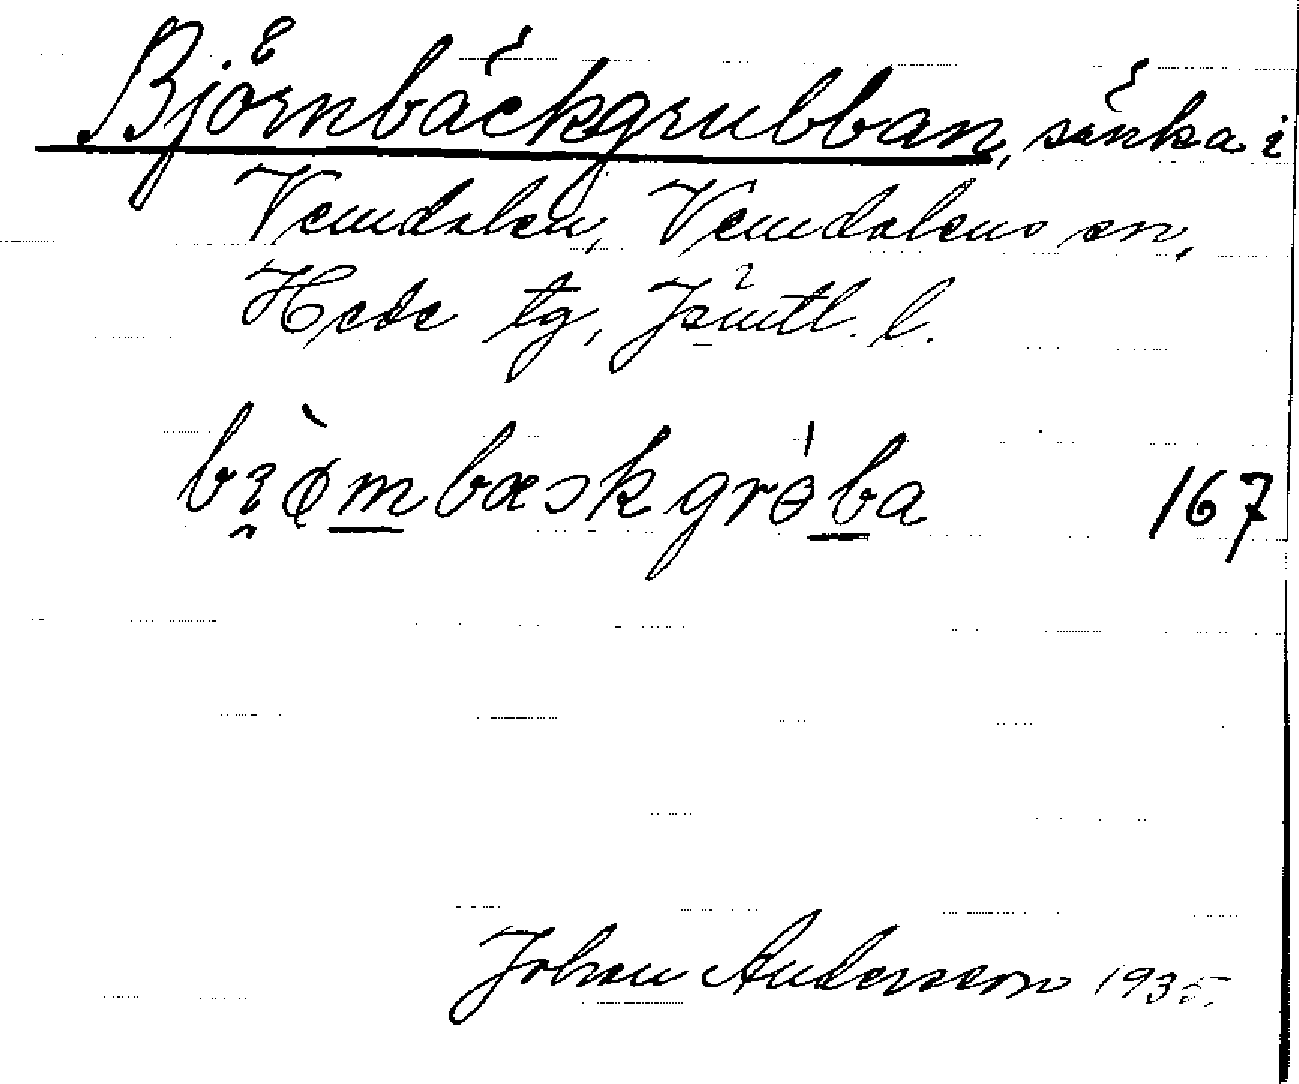 Björnbäckgrubban, sänka i
Vemdalen, Vemdalens sn,
Hede tg, Jämtl. l.
bɿ̯ø̀mbæskgrɵ́ba 167
Johan Andersson 1935.